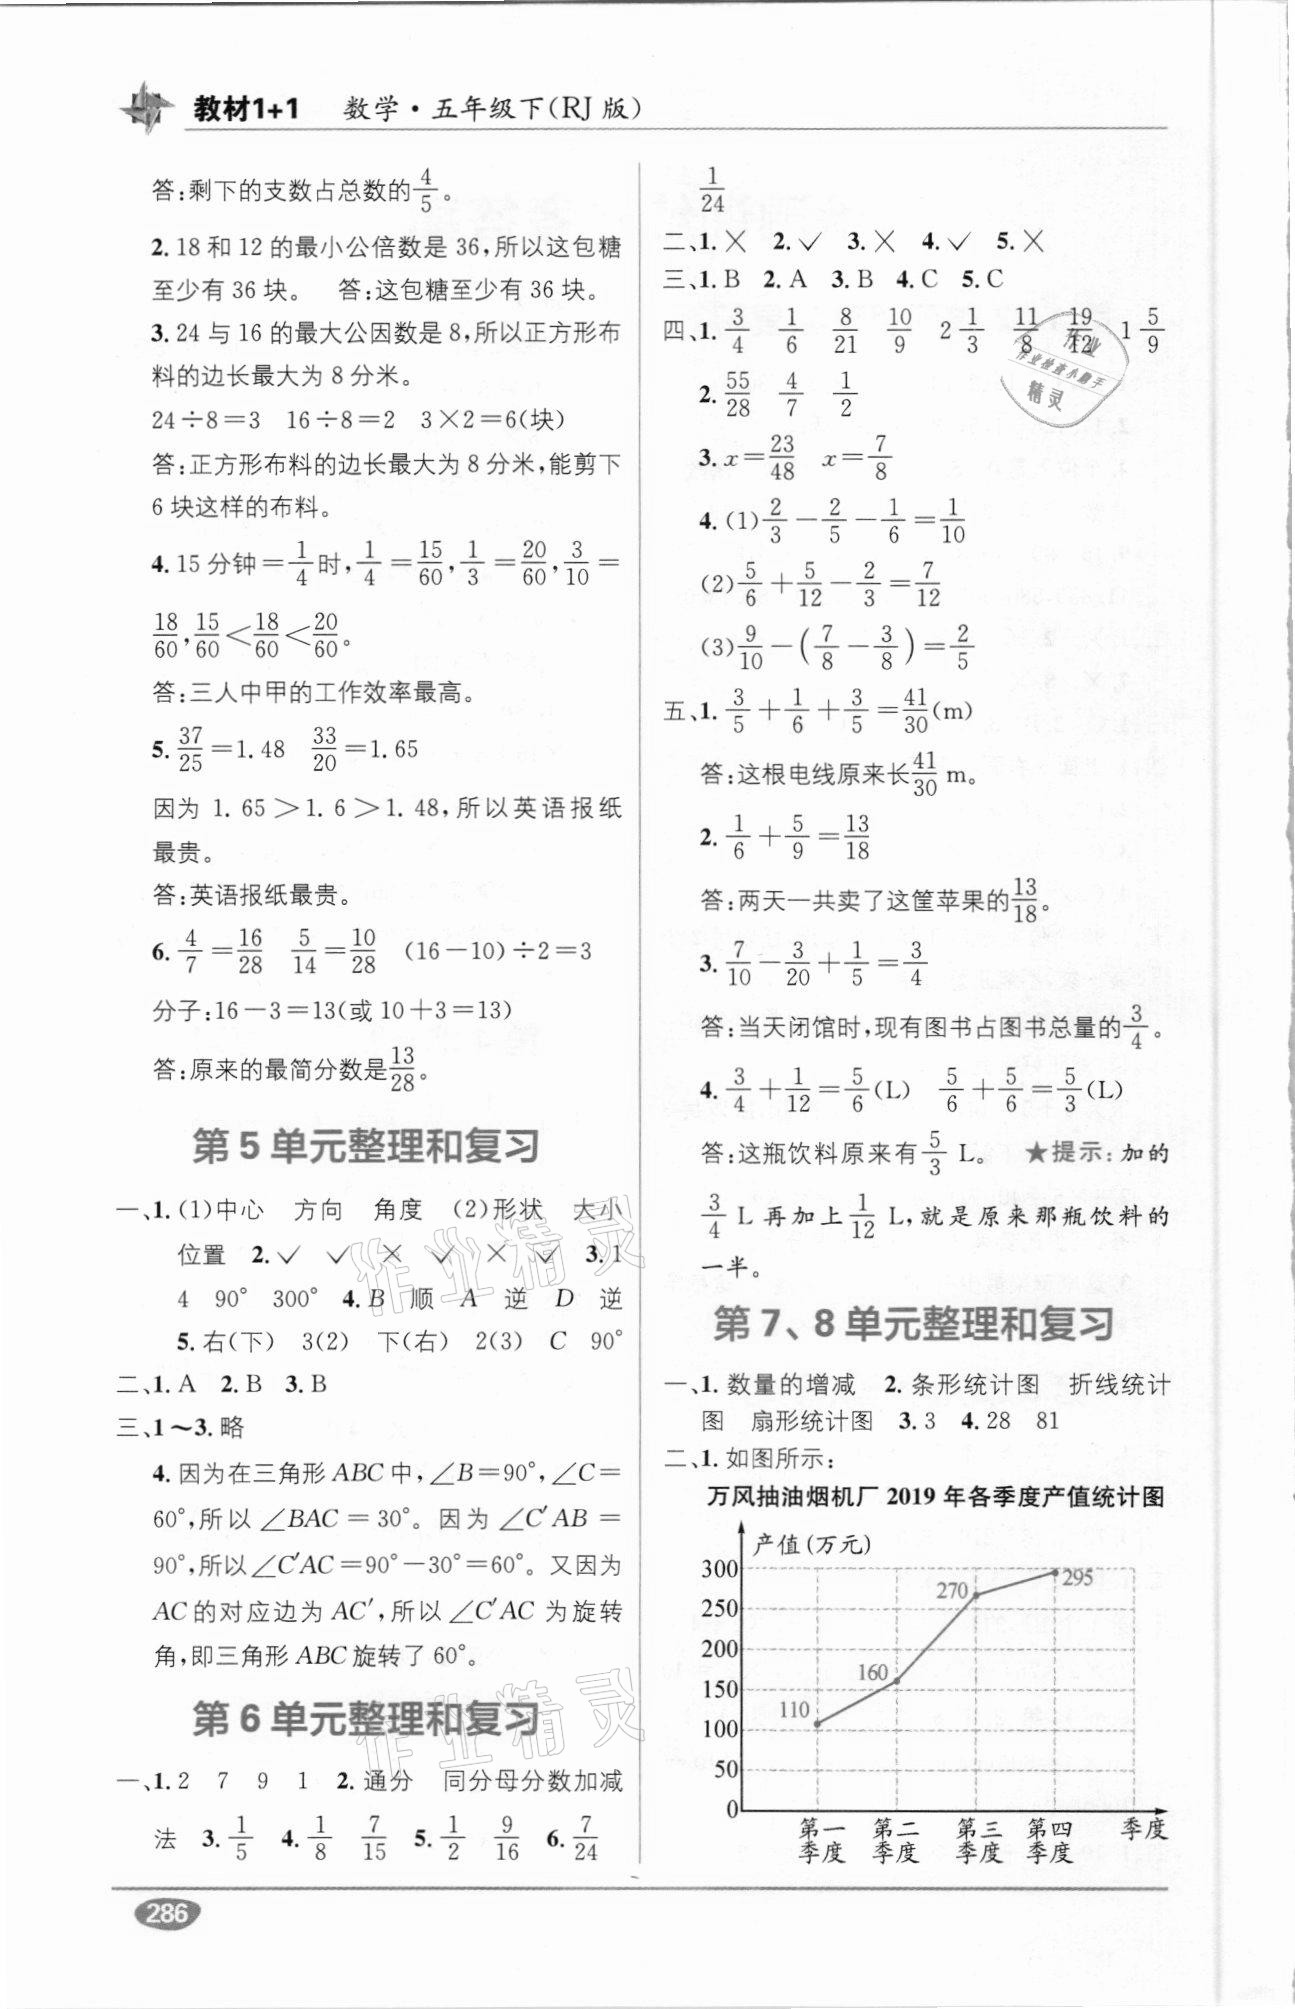 教材1+1 数学·五年级下(RJ版)
答:剩下的支数占总数的4/5。
2.18和12的最小公倍数是36,所以这包糖
至少有36块。 答:这包糖至少有36块。
3.24与16的最大公因数是8,所以正方形布
料的边长最大为8分米。
24÷8=3 16÷8=2 3×2=6(块)
答:正方形布料的边长最大为8分米,能剪下
6块这样的布料。
4.15分钟=1/4时,1/4=15/60,1/3=20/60,3/10=
18/60,15/60<18/60<20/60。
答:三人中甲的工作效率最高。
5.37/25=1.48 33/20=1.65
因为1.65>1.6>1.48,所以英语报纸
最贵。
答:英语报纸最贵。
6.4/7=16/28 5/14=10/28 (16-10)÷2=3
分子:16-3=13(或10+3=13)
答:原来的最简分数是13/28。
第5单元整理和复习
一、1.(1)中心 方向 角度 (2)形状 大小
位置 2.✓ ✓ × ✓ × ✓ 3.1
4 90° 300° 4.B 顺 A 逆 D 逆
5.右(下) 3(2) 下(右) 2(3) C 90°
二、1.A 2.B 3.B
三、1~3.略
4.因为在三角形ABC中,∠B=90°,∠C=
60°,所以∠BAC=30°。因为∠C′AB=
90°,所以∠C′AC=90°-30°=60°。又因为
AC的对应边为AC′,所以∠C′AC为旋转
角,即三角形ABC旋转了60°。
第6单元整理和复习
一、1.2 7 9 1 2.通分 同分母分数加减
法 3.1/5 4.1/8 7/15 5.1/2 9/16 6.7/24
286
1/24
二、1.× 2.✓ 3.× 4.✓ 5.×
三、1.B 2.A 3.B 4.C 5.C
四、1.3/4 1/6 8/21 10/9 2 1/3 11/8 19/12 1 5/9
2.55/28 4/7 1/2
3.x=23/48 x=7/8
4.(1)2/3-2/5-1/6=1/10
(2)5/6+5/12-2/3=7/12
(3)9/10-(7/8-3/8)=2/5
五、1.3/5+1/6+3/5=41/30(m)
答:这根电线原来长41/30 m。
2.1/6+5/9=13/18
答:两天一共卖了这筐苹果的13/18。
3.7/10-3/20+1/5=3/4
答:当天闭馆时,现有图书占图书总量的3/4。
4.3/4+1/12=5/6(L) 5/6+5/6=5/3(L)
答:这瓶饮料原来有5/3 L。 ★提示:加的
3/4 L再加上1/12 L,就是原来那瓶饮料的
一半。
第7、8单元整理和复习
一、1.数量的增减 2.条形统计图 折线统计
图 扇形统计图 3.3 4.28 81
二、1.如图所示:
万风抽油烟机厂2019年各季度产值统计图
产值(万元)
300
250
200
150
100
50
0
110
160
270
295
第一季度 第二季度 第三季度 第四季度 季度
作业
作业检查小助手
精灵
作业精灵
作业精灵